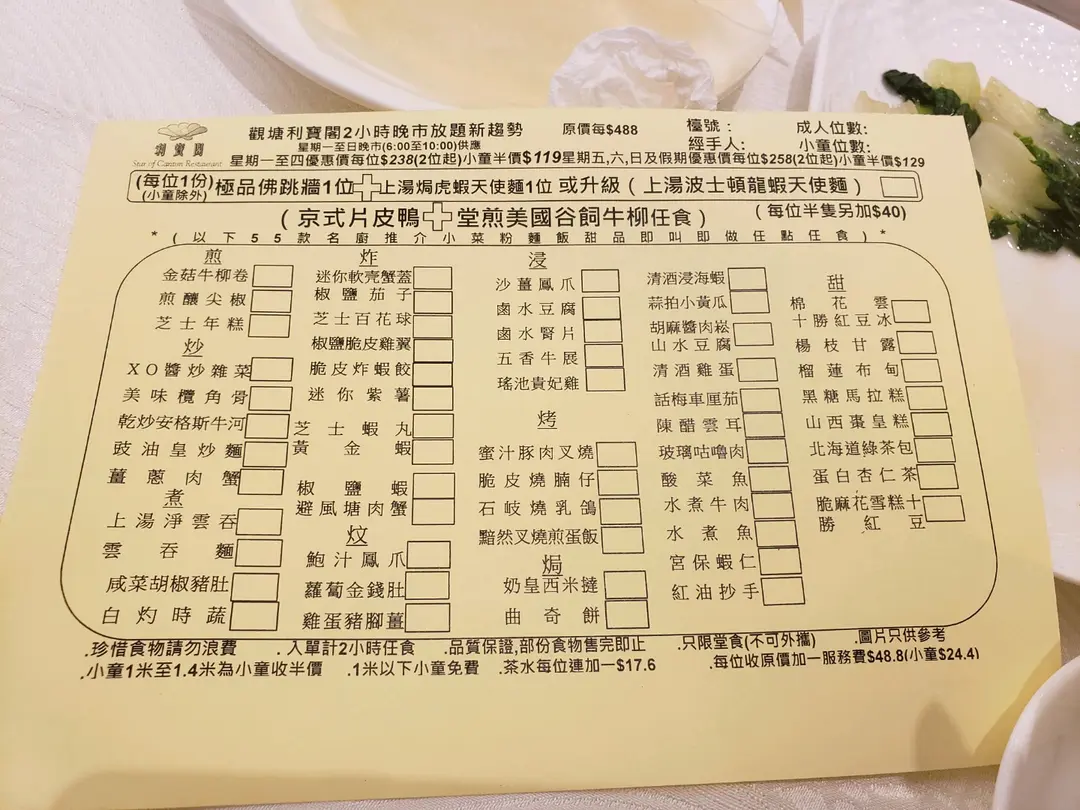 利寶閣
Star of Canton Restaurant
觀塘利寶閣2小時晚市放題新趨勢 原價每$488 檯號： 成人位數：
星期一至日晚市(6:00至10:00)供應 經手人： 小童位數：
星期一至四優惠價每位$238(2位起)小童半價$119星期五,六,日及假期優惠價每位$258(2位起)小童半價$129
(每位1份) 極品佛跳牆1位 上湯焗虎蝦天使麵1位 或升級（上湯波士頓龍蝦天使麵）
(小童除外)
（京式片皮鴨 堂煎美國谷飼牛柳任食） (每位半隻另加$40)
*（以下55款名廚推介小菜粉麵飯甜品即叫即做任點任食）*
煎
金菇牛柳卷
煎釀尖椒
芝士年糕
炒
XO醬炒雜菜
美味欖角骨
乾炒安格斯牛河
豉油皇炒麵
薑蔥肉蟹
煮
上湯淨雲吞
雲吞麵
咸菜胡椒豬肚
白灼時蔬
炸
迷你軟壳蟹蓋
椒鹽茄子
芝士百花球
椒鹽脆皮雞翼
脆皮炸蝦餃
迷你紫薯
芝士蝦丸
黃金蝦
椒鹽蝦
避風塘肉蟹
炆
鮑汁鳳爪
蘿蔔金錢肚
雞蛋豬腳薑
浸
沙薑鳳爪
鹵水豆腐
鹵水腎片
五香牛展
瑤池貴妃雞
烤
蜜汁豚肉叉燒
脆皮燒腩仔
石岐燒乳鴿
黯然叉燒煎蛋飯
焗
奶皇西米撻
曲奇餅
清酒浸海蝦
蒜拍小黃瓜
胡麻醬肉崧
山水豆腐
清酒雞蛋
話梅車厘茄
陳醋雲耳
玻璃咕嚕肉
酸菜魚
水煮牛肉
水煮魚
宮保蝦仁
紅油抄手
甜
棉花雲
十勝紅豆冰
楊枝甘露
榴蓮布甸
黑糖馬拉糕
山西棗皇糕
北海道綠茶包
蛋白杏仁茶
脆麻花雪糕十
勝紅豆
.珍惜食物請勿浪費 .入單計2小時任食 .品質保證,部份食物售完即止 .只限堂食(不可外攜) .圖片只供參考
.小童1米至1.4米為小童收半價 .1米以下小童免費 .茶水每位連加一$17.6 .每位收原價加一服務費$48.8(小童$24.4)